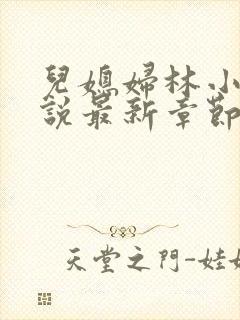 兒媳婦林小
說最新章節
天堂之門-娃娃